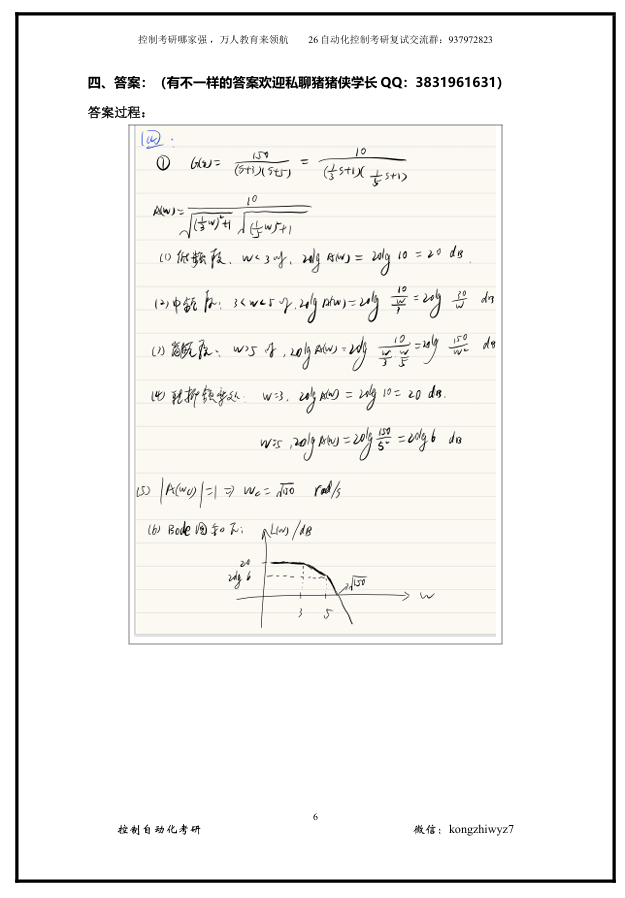 控制考研哪家强，万人教育来领航 26自动化控制考研复试交流群：937972823
四、答案：（有不一样的答案欢迎私聊猪猪侠学长 QQ：3831961631）
答案过程：
四：
① G(s)= 150/((s+3)(s+5)) = 10/((1/3 s+1)(1/5 s+1))
A(w)= 10/(√((1/3 w)²+1) √((1/5 w)²+1))
(1) 低频段、w<3时、20lg A(w) = 20lg 10 = 20 dB.
(2) 中频段：3<w<5时,20lg A(w)=20lg 10/(w/3) =20lg 30/w dB
(3) 高频段：w>5时,20lg A(w)=20lg 10/(w/3·w/5) =20lg 150/w² dB
(4) 转折频率处： w=3, 20lg A(w) = 20lg 10 = 20 dB.
w=5,20lg A(w)=20lg 150/5² =20lg 6 dB
(5) |A(wc)|=1 ⇒ wc= √150 rad/s
(6) Bode图如下：
L(w)/dB
20
20lg 6
√150
w
3 5
6
控制自动化考研 微信：kongzhiwyz7